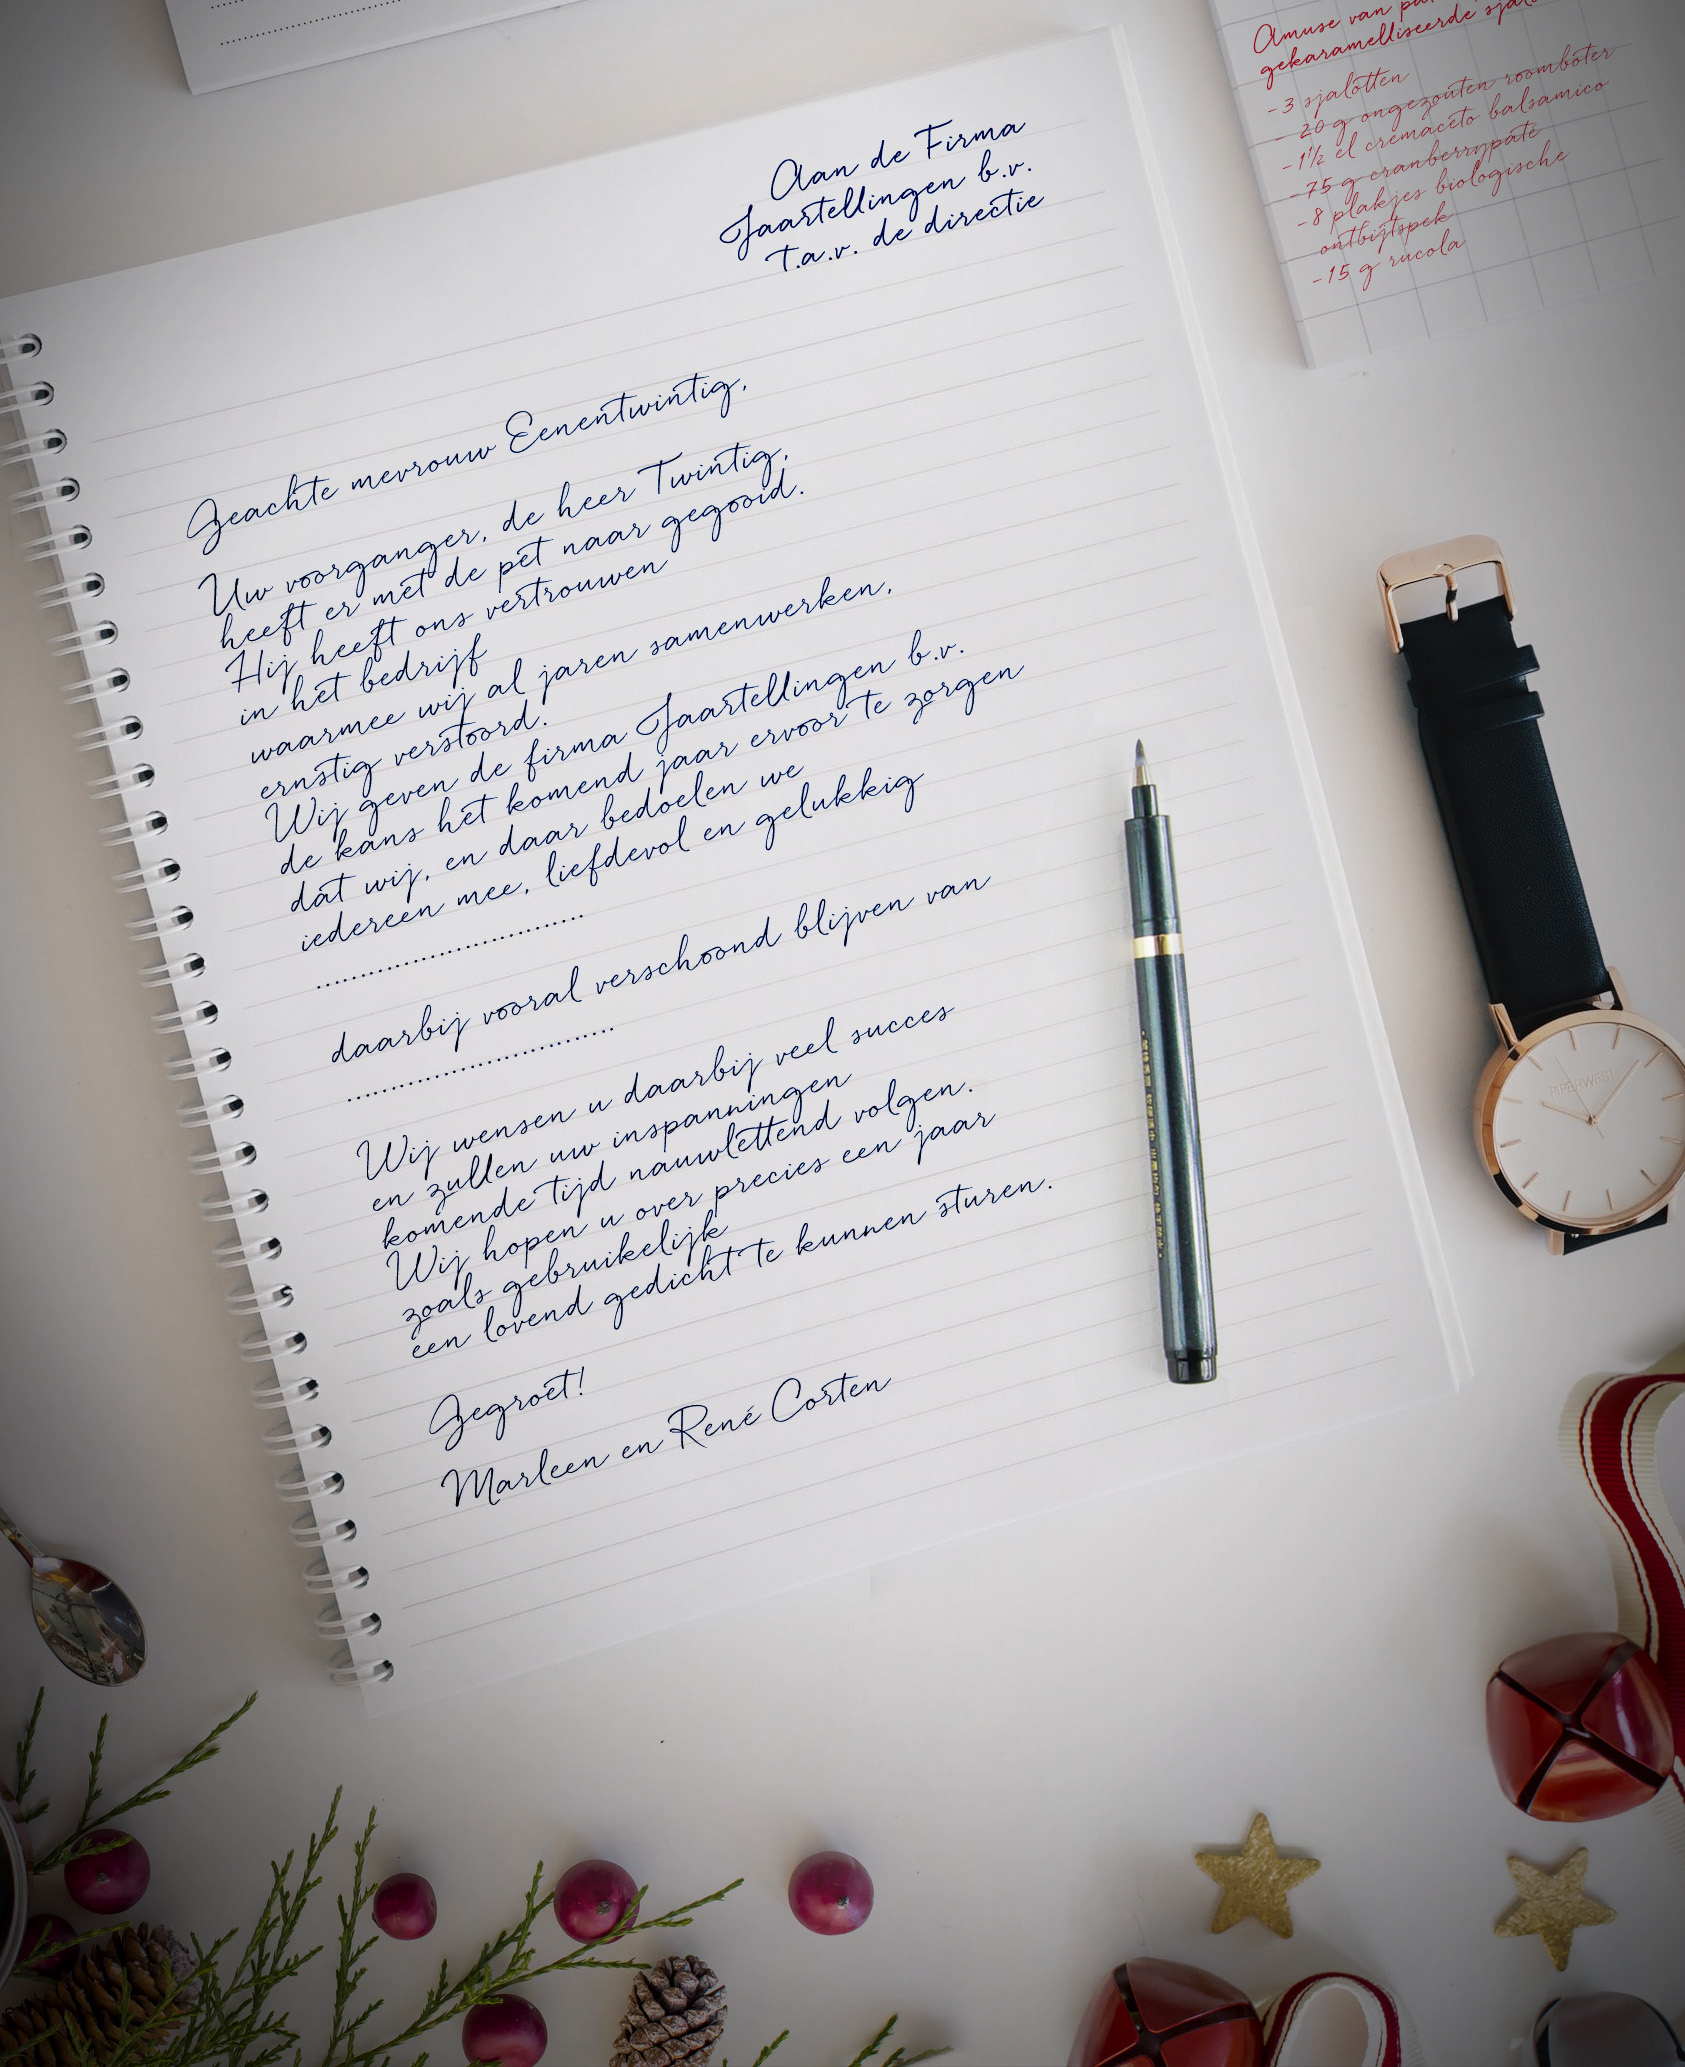 Aan de Firma
Jaartellingen b.v.
t.a.v. de directie
Geachte mevrouw Eenentwintig,
Uw voorganger, de heer Twintig,
heeft er met de pet naar gegooid.
Hij heeft ons vertrouwen
in het bedrijf
waarmee wij al jaren samenwerken,
ernstig verstoord.
Wij geven de firma Jaartellingen b.v.
de kans het komend jaar ervoor te zorgen
dat wij, en daar bedoelen we
iedereen mee, liefdevol en gelukkig
..............................
daarbij vooral verschoond blijven van
..............................
Wij wensen u daarbij veel succes
en zullen uw inspanningen
komende tijd nauwlettend volgen.
Wij hopen u over precies een jaar
zoals gebruikelijk
een lovend gedicht te kunnen sturen.
Gegroet!
Marleen en René Corten
Amuse van
gekaramelliseerde
-3 sjalotten
- 20 g ongezouten roomboter
-1½ el cremaceto balsamico
-75 g cranberrypaté
-8 plakjes biologische
ontbijtspek
-15 g rucola